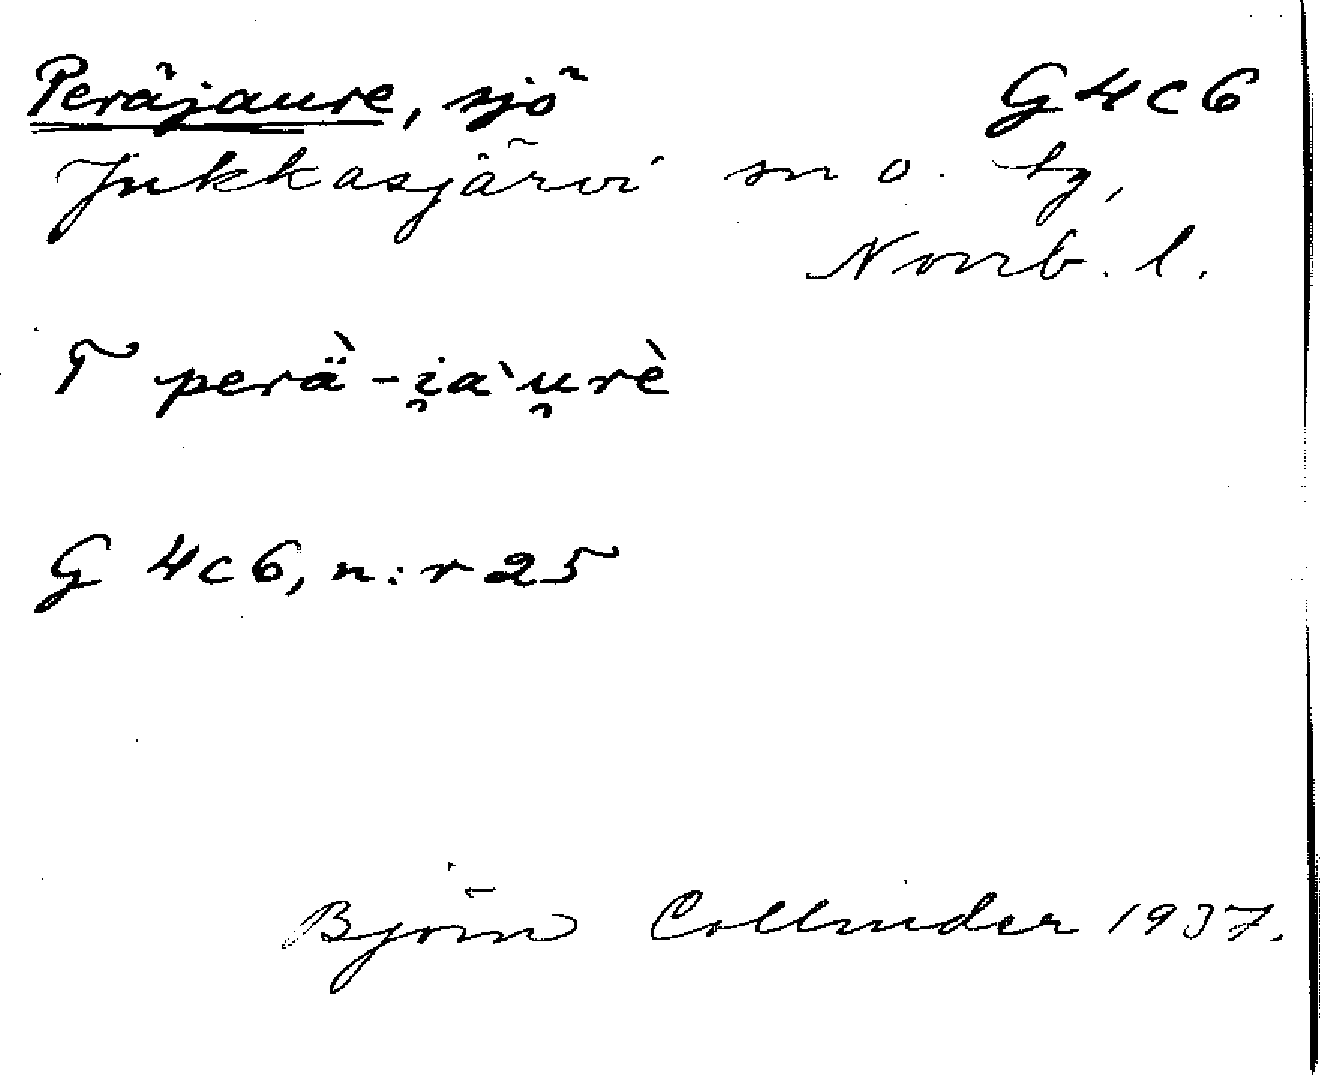 Peräjaure, sjö G4c6
Jukkasjärvi sn o. tg,
Norrb. l.
T perä̀-i̯a`u̯rè
G 4c6, n:r 25
Björn Collinder 1937.